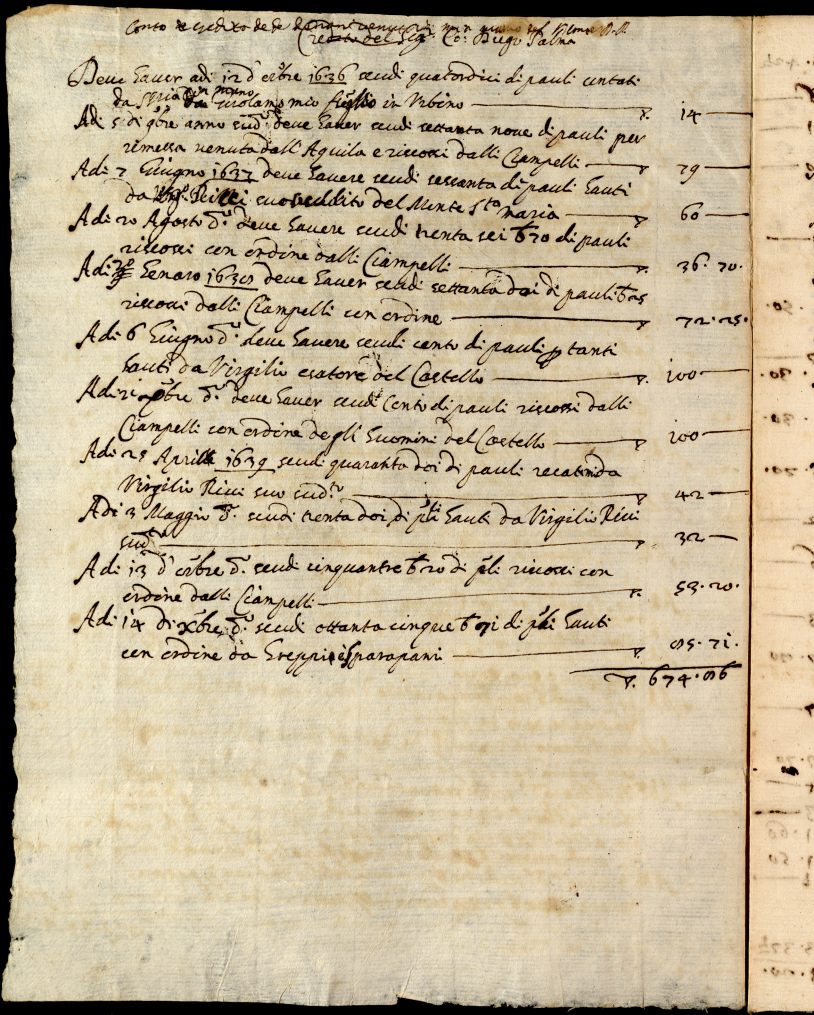 Conto e credito de de denari venuti in mano del Conte
Credito del Sigr. Co: Diego Palma
Deve haver adi 12 d'8bre 1636 scudi quatordici di pauli contati
da Girolamo mio figlio in Urbino ▽. 14
Adi 5 di 9bre anno sud.º deve haver scudi settanta nove di pauli per
rimessa venuta dall'Aquila e riscossi dalli Ciampelli ▽ 79
Adi 7 Giugno 1637 deve havere scudi sessanta di pauli hauti
da suo reddito del Monte S.ta maria ▽ 60
Adi 20 Agosto d.º deve havere scudi trenta sei b 70 di pauli
riscossi con ordine dalli Ciampelli ▽. 36.70.
Adi Genaro 1638 deve haver scudi settanta doi di pauli b 25
riscossi dalli Ciampelli con ordine ▽ 72.25.
Adi 6 Giugno d.º deve havere scudi cento di pauli p tanti
hauti da Virgilio esatore del Castello ▽. 100
Adi 21 Xbre d.º deve haver scudi Cento di pauli riscossi dalli
Ciampelli con ordine degli huomini del Castello ▽ 100
Adi 25 Aprile 1639 scudi quaranta doi di pauli recati da
Virgilio Ricci suo sud.to ▽ 42
Adi 3 Maggio d.º scudi trenta doi di pli hauti da Virgilio Ricci
sud.to ▽ 32
Adi 13 d'8bre d.º scudi cinquantre b 20 di pli riscossi con
ordine dalli Ciampelli ▽. 53.20.
Adi 14 di Xbre d.º scudi ottanta cinque b 71 di pli hauti
con ordine da Greppi e Sparapani ▽. 85.71.
▽. 674.86